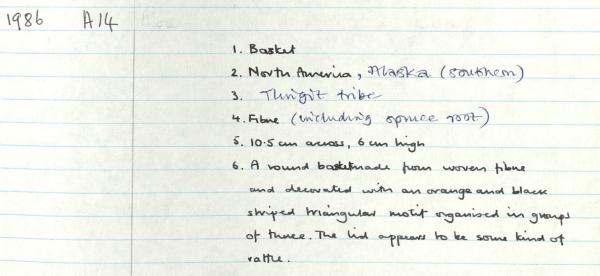 1986 A14
1. Basket
2. North America, Alaska (southern)
3. Tlingit tribe
4. Fibre (including spruce root)
5. 10.5 cm across, 6 cm high
6. A round basket made from woven fibre
and decorated with an orange and black
striped triangular motif organised in groups
of three. The lid appears to be some kind of
rattle.